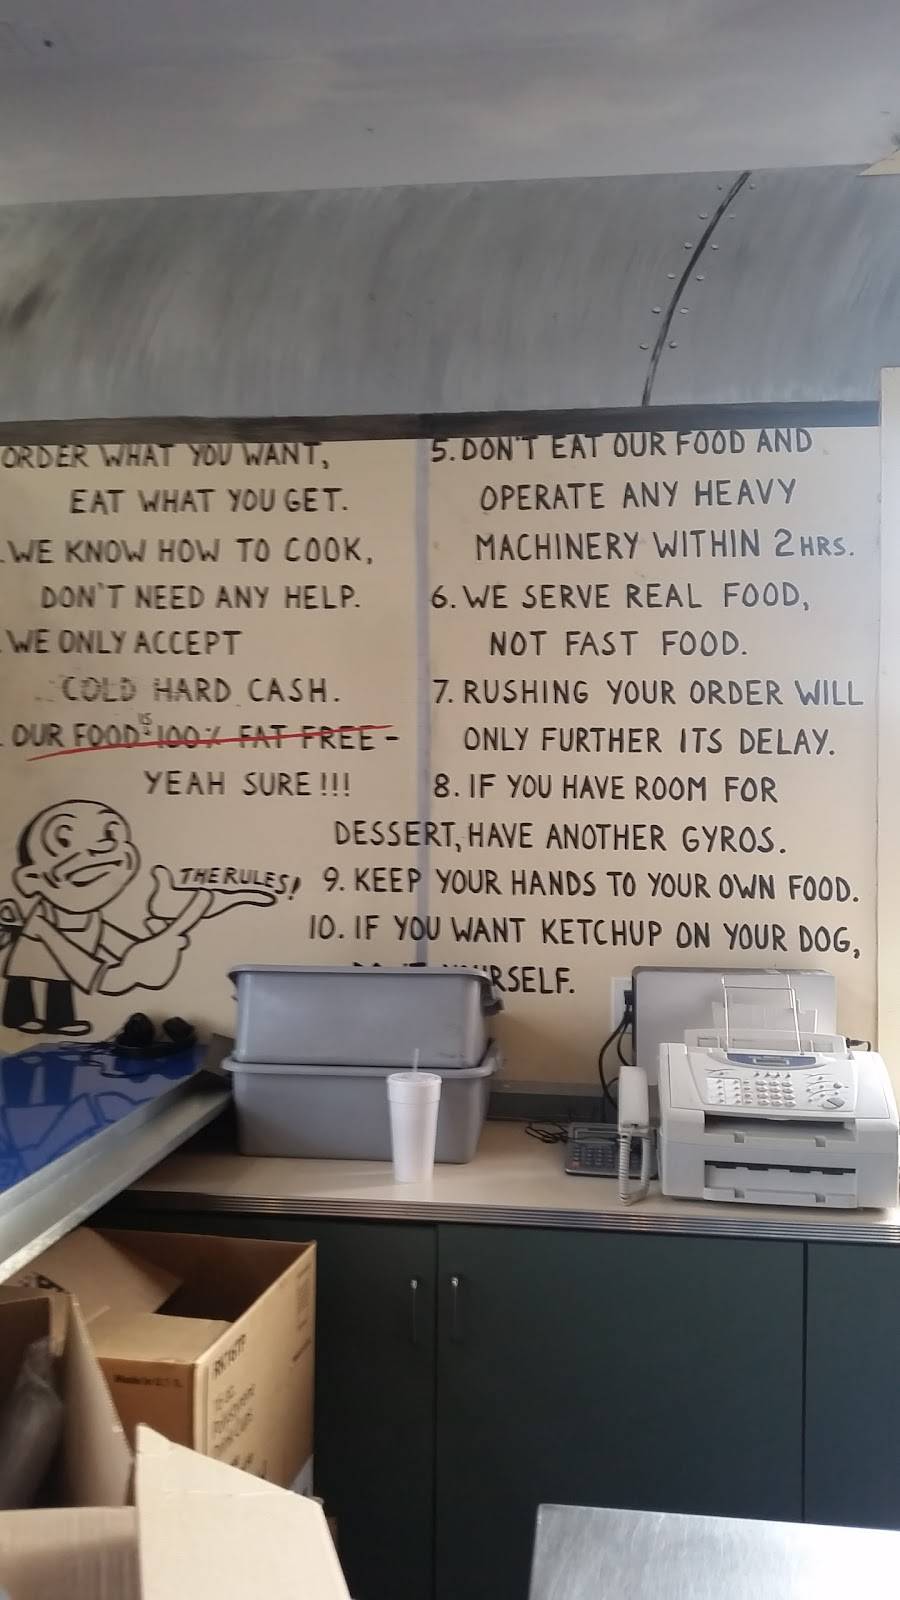 ORDER WHAT YOU WANT,
EAT WHAT YOU GET.
WE KNOW HOW TO COOK,
DON'T NEED ANY HELP.
WE ONLY ACCEPT
COLD HARD CASH.
OUR FOOD IS 100% FAT FREE -
YEAH SURE!!!
THE RULES!
5. DON'T EAT OUR FOOD AND
OPERATE ANY HEAVY
MACHINERY WITHIN 2 HRS.
6. WE SERVE REAL FOOD,
NOT FAST FOOD.
7. RUSHING YOUR ORDER WILL
ONLY FURTHER ITS DELAY.
8. IF YOU HAVE ROOM FOR
DESSERT, HAVE ANOTHER GYROS.
9. KEEP YOUR HANDS TO YOUR OWN FOOD.
10. IF YOU WANT KETCHUP ON YOUR DOG,
DO IT YOURSELF.
RK16TP
Made in U.S.A.